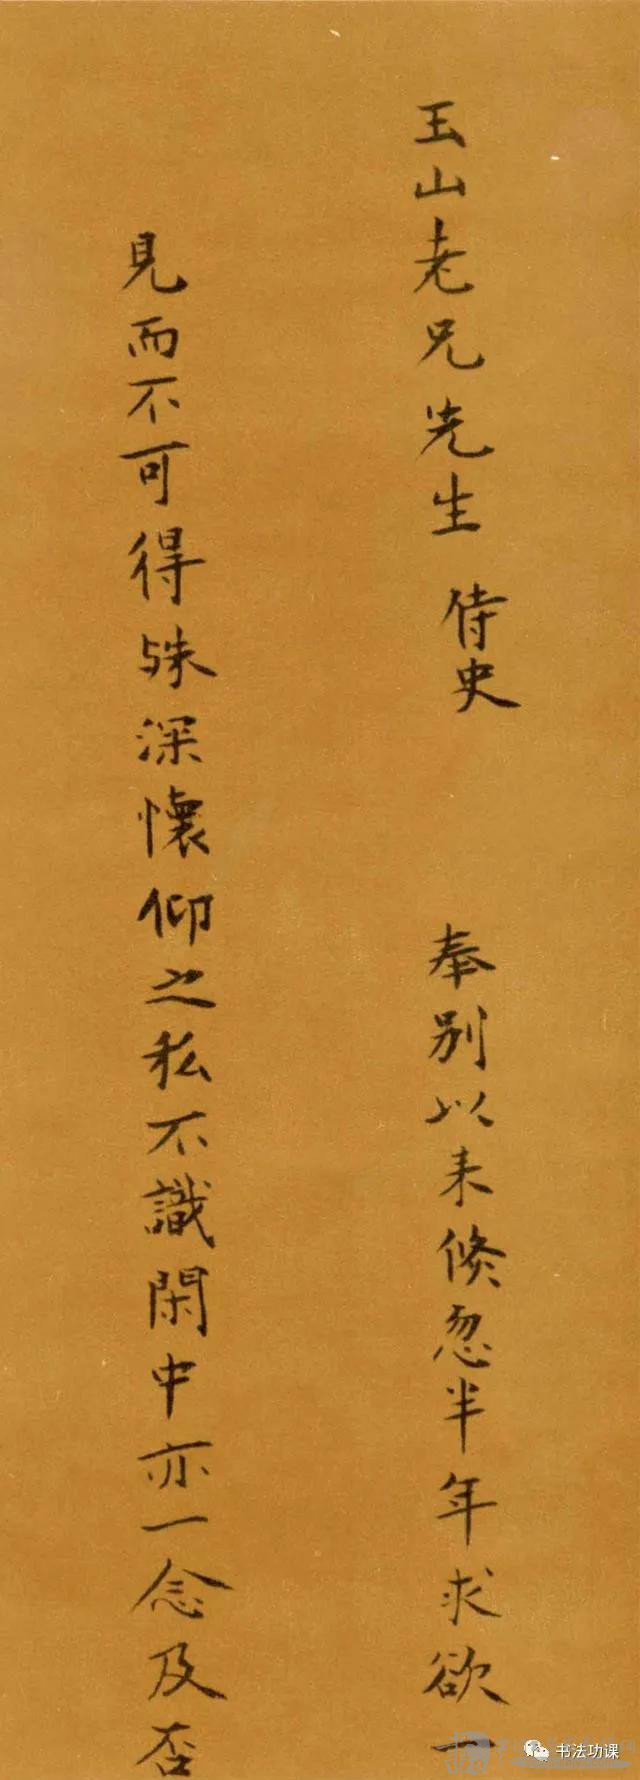 玉山老兄先生 侍史 奉別以来倏忽半年求欲一
見而不可得殊深懷仰之私不識閑中亦一念及否
书法功课